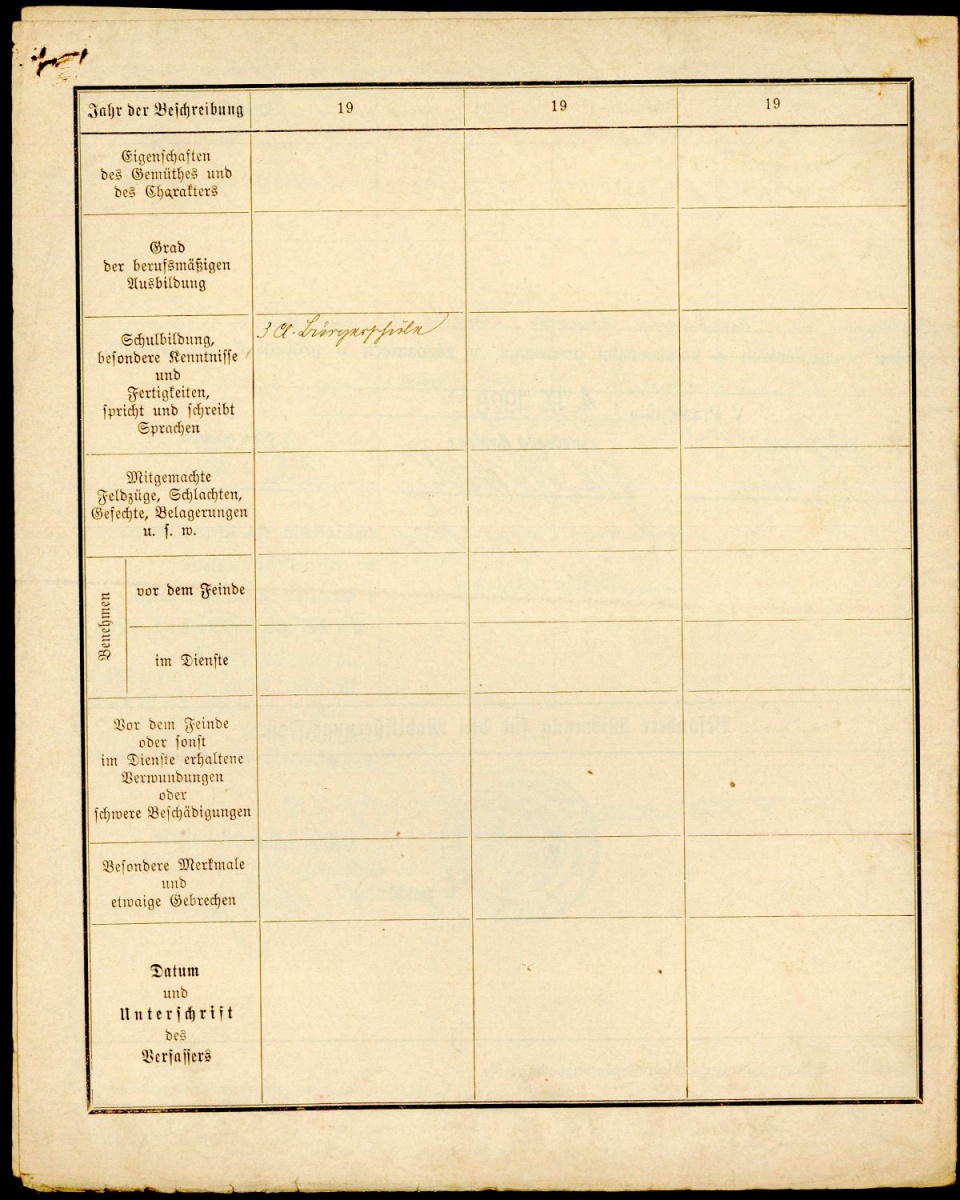 Jahr der Beschreibung 19 19 19
Eigenschaften
des Gemüthes und
des Charakters
Grad
der berufsmäßigen
Ausbildung
Schulbildung,
besondere Kenntnisse
und
Fertigkeiten,
spricht und schreibt
Sprachen
3 Cl. Bürgerschule
Mitgemachte
Feldzüge, Schlachten,
Gefechte, Belagerungen
u. s. w.
Benehmen
vor dem Feinde
im Dienste
Vor dem Feinde
oder sonst
im Dienste erhaltene
Verwundungen
oder
schwere Beschädigungen
Besondere Merkmale
und
etwaige Gebrechen
Datum
und
Unterschrift
des
Verfassers